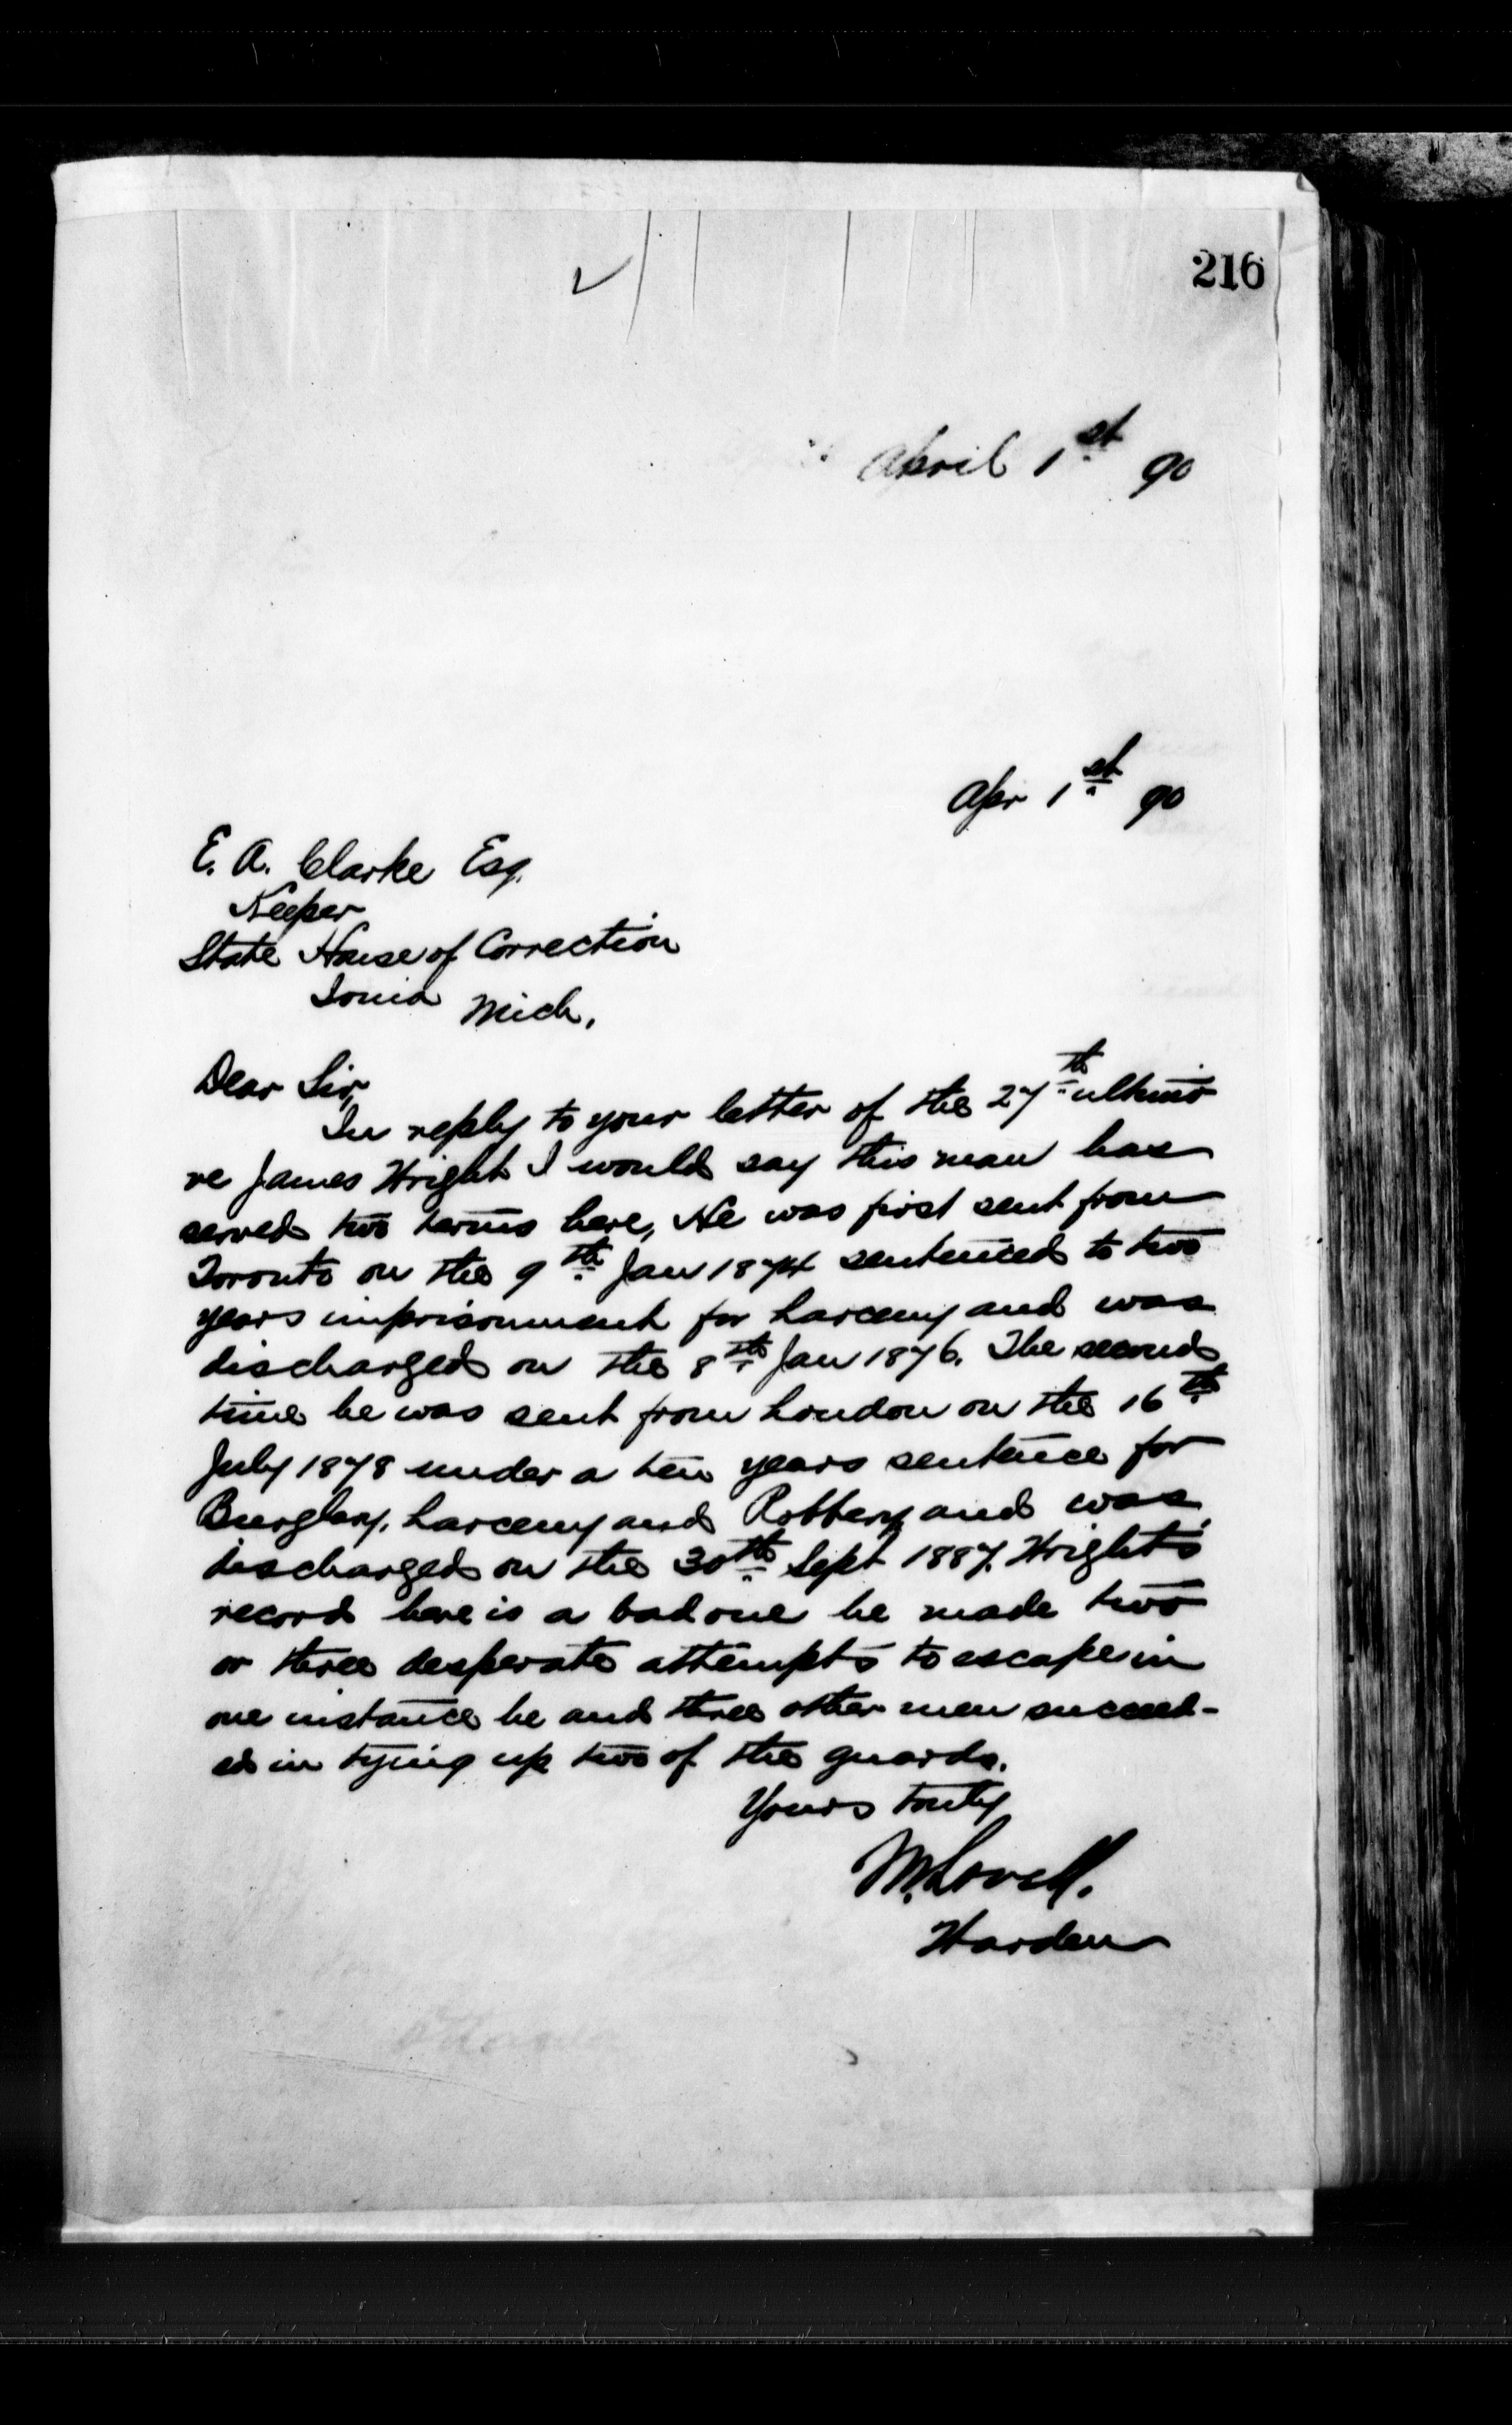 216
April 1st 90
Apr 1st 90
E. A. Clarke Esq.
Keeper
State House of Correction
Ionia Mich.
Dear Sir,
In reply to your letter of the 27th ultimo
re James Wright I would say this man has
served two terms here, He was first sent from
Toronto on the 9th Jan 1874 sentenced to two
years imprisonment for Larceny and was
discharged on the 8th Jan 1876. The second
time he was sent from London on the 16th
July 1878 under a ten years sentence for
Burglary, Larceny and Robbery and was
discharged on the 30th Sept 1887. Wright's
record here is a bad one he made two
or three desperate attempts to escape in
one instance he and three other men succeed-
ed in tying up two of the guards.
Yours truly
M. Lavell.
Warden